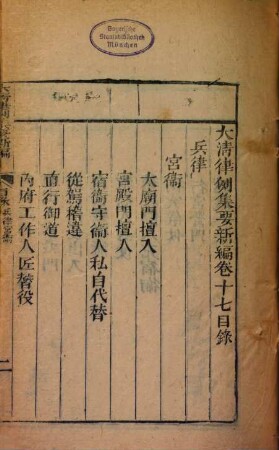 Bayerische
Staatsbibliothek
München
大清律例集要新編卷十七目錄
兵律
宮衛
太廟門擅入
宮殿門擅入
宿衛守衛人私自代替
從駕稽違
直行御道
內府工作人匠替役